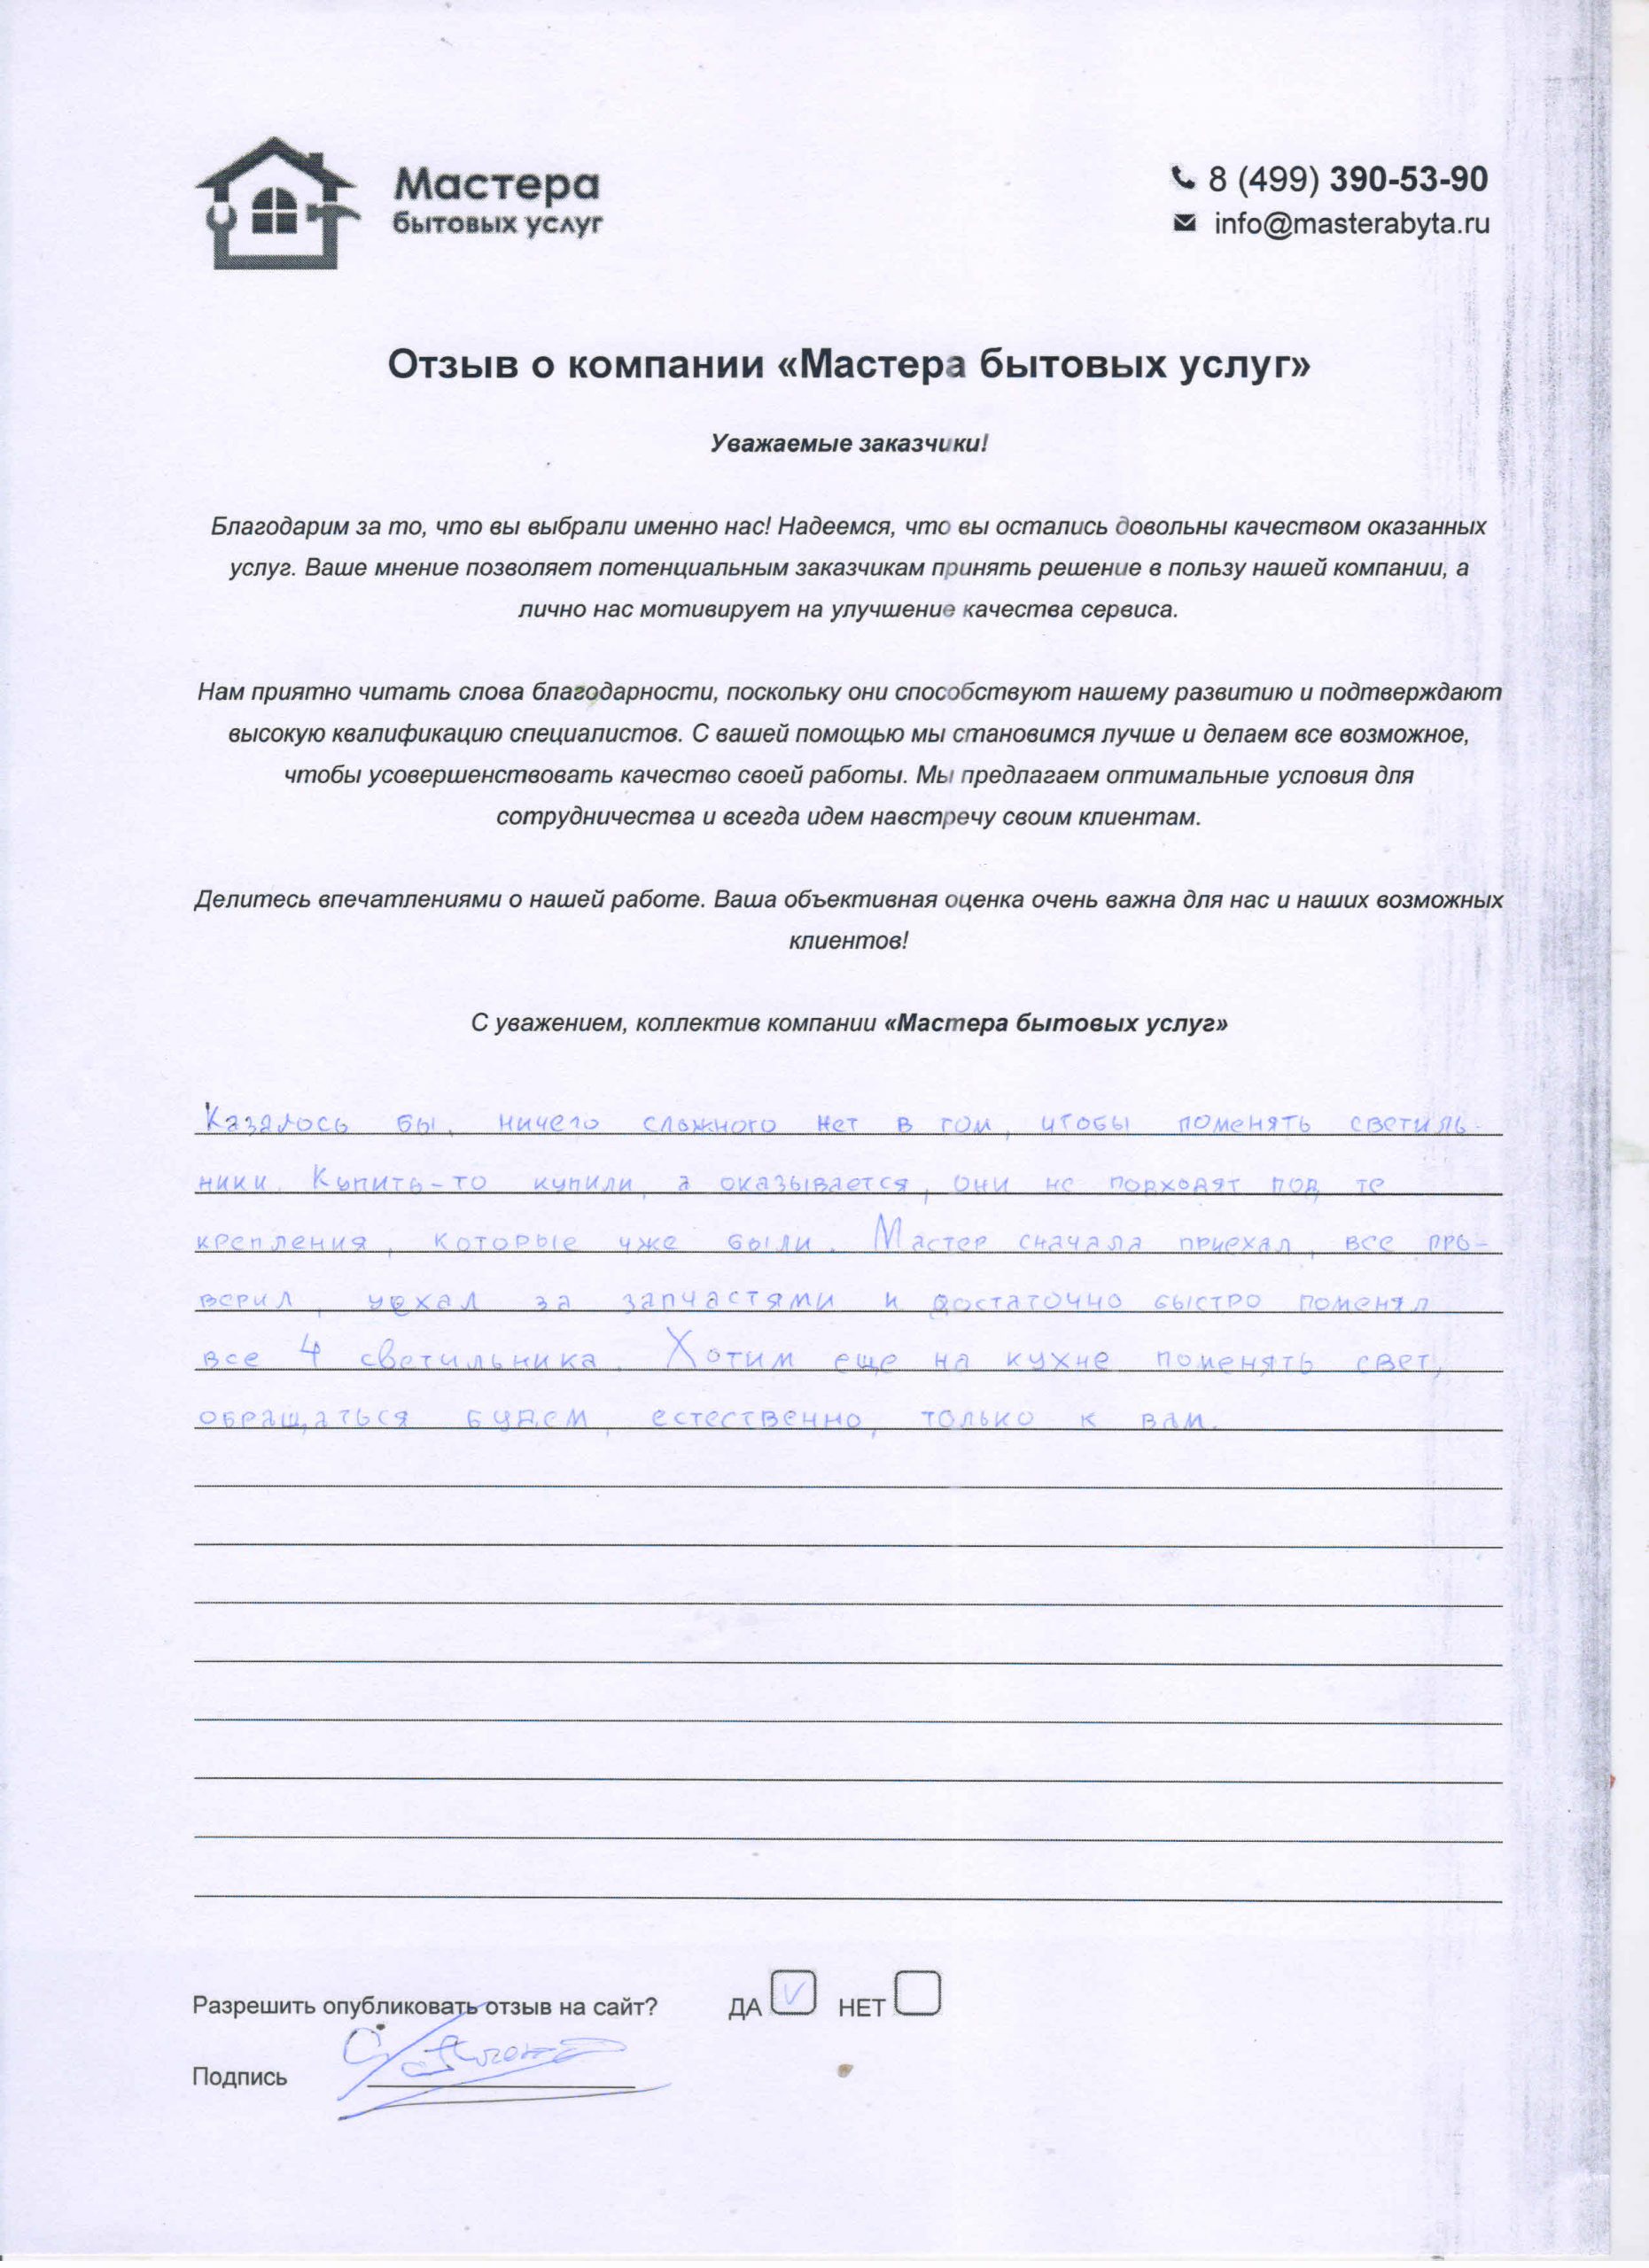 Мастера
бытовых услуг
8 (499) 390-53-90
info@masterabyta.ru
Отзыв о компании «Мастера бытовых услуг»
Уважаемые заказчики!
Благодарим за то, что вы выбрали именно нас! Надеемся, что вы остались довольны качеством оказанных
услуг. Ваше мнение позволяет потенциальным заказчикам принять решение в пользу нашей компании, а
лично нас мотивирует на улучшение качества сервиса.
Нам приятно читать слова благодарности, поскольку они способствуют нашему развитию и подтверждают
высокую квалификацию специалистов. С вашей помощью мы становимся лучше и делаем все возможное,
чтобы усовершенствовать качество своей работы. Мы предлагаем оптимальные условия для
сотрудничества и всегда идем навстречу своим клиентам.
Делитесь впечатлениями о нашей работе. Ваша объективная оценка очень важна для нас и наших возможных
клиентов!
С уважением, коллектив компании «Мастера бытовых услуг»
Казалось бы, ничего сложного нет в том, чтобы поменять светиль-
ники. Купить-то купили, а оказывается, они не подходят под те
крепления, которые уже были. Мастер сначала приехал, все про-
верил, уехал за запчастями и достаточно быстро поменял
все 4 светильника. Хотим еще на кухне поменять свет,
обращаться будем, естественно, только к вам.
Разрешить опубликовать отзыв на сайт? ДА V НЕТ
Подпись